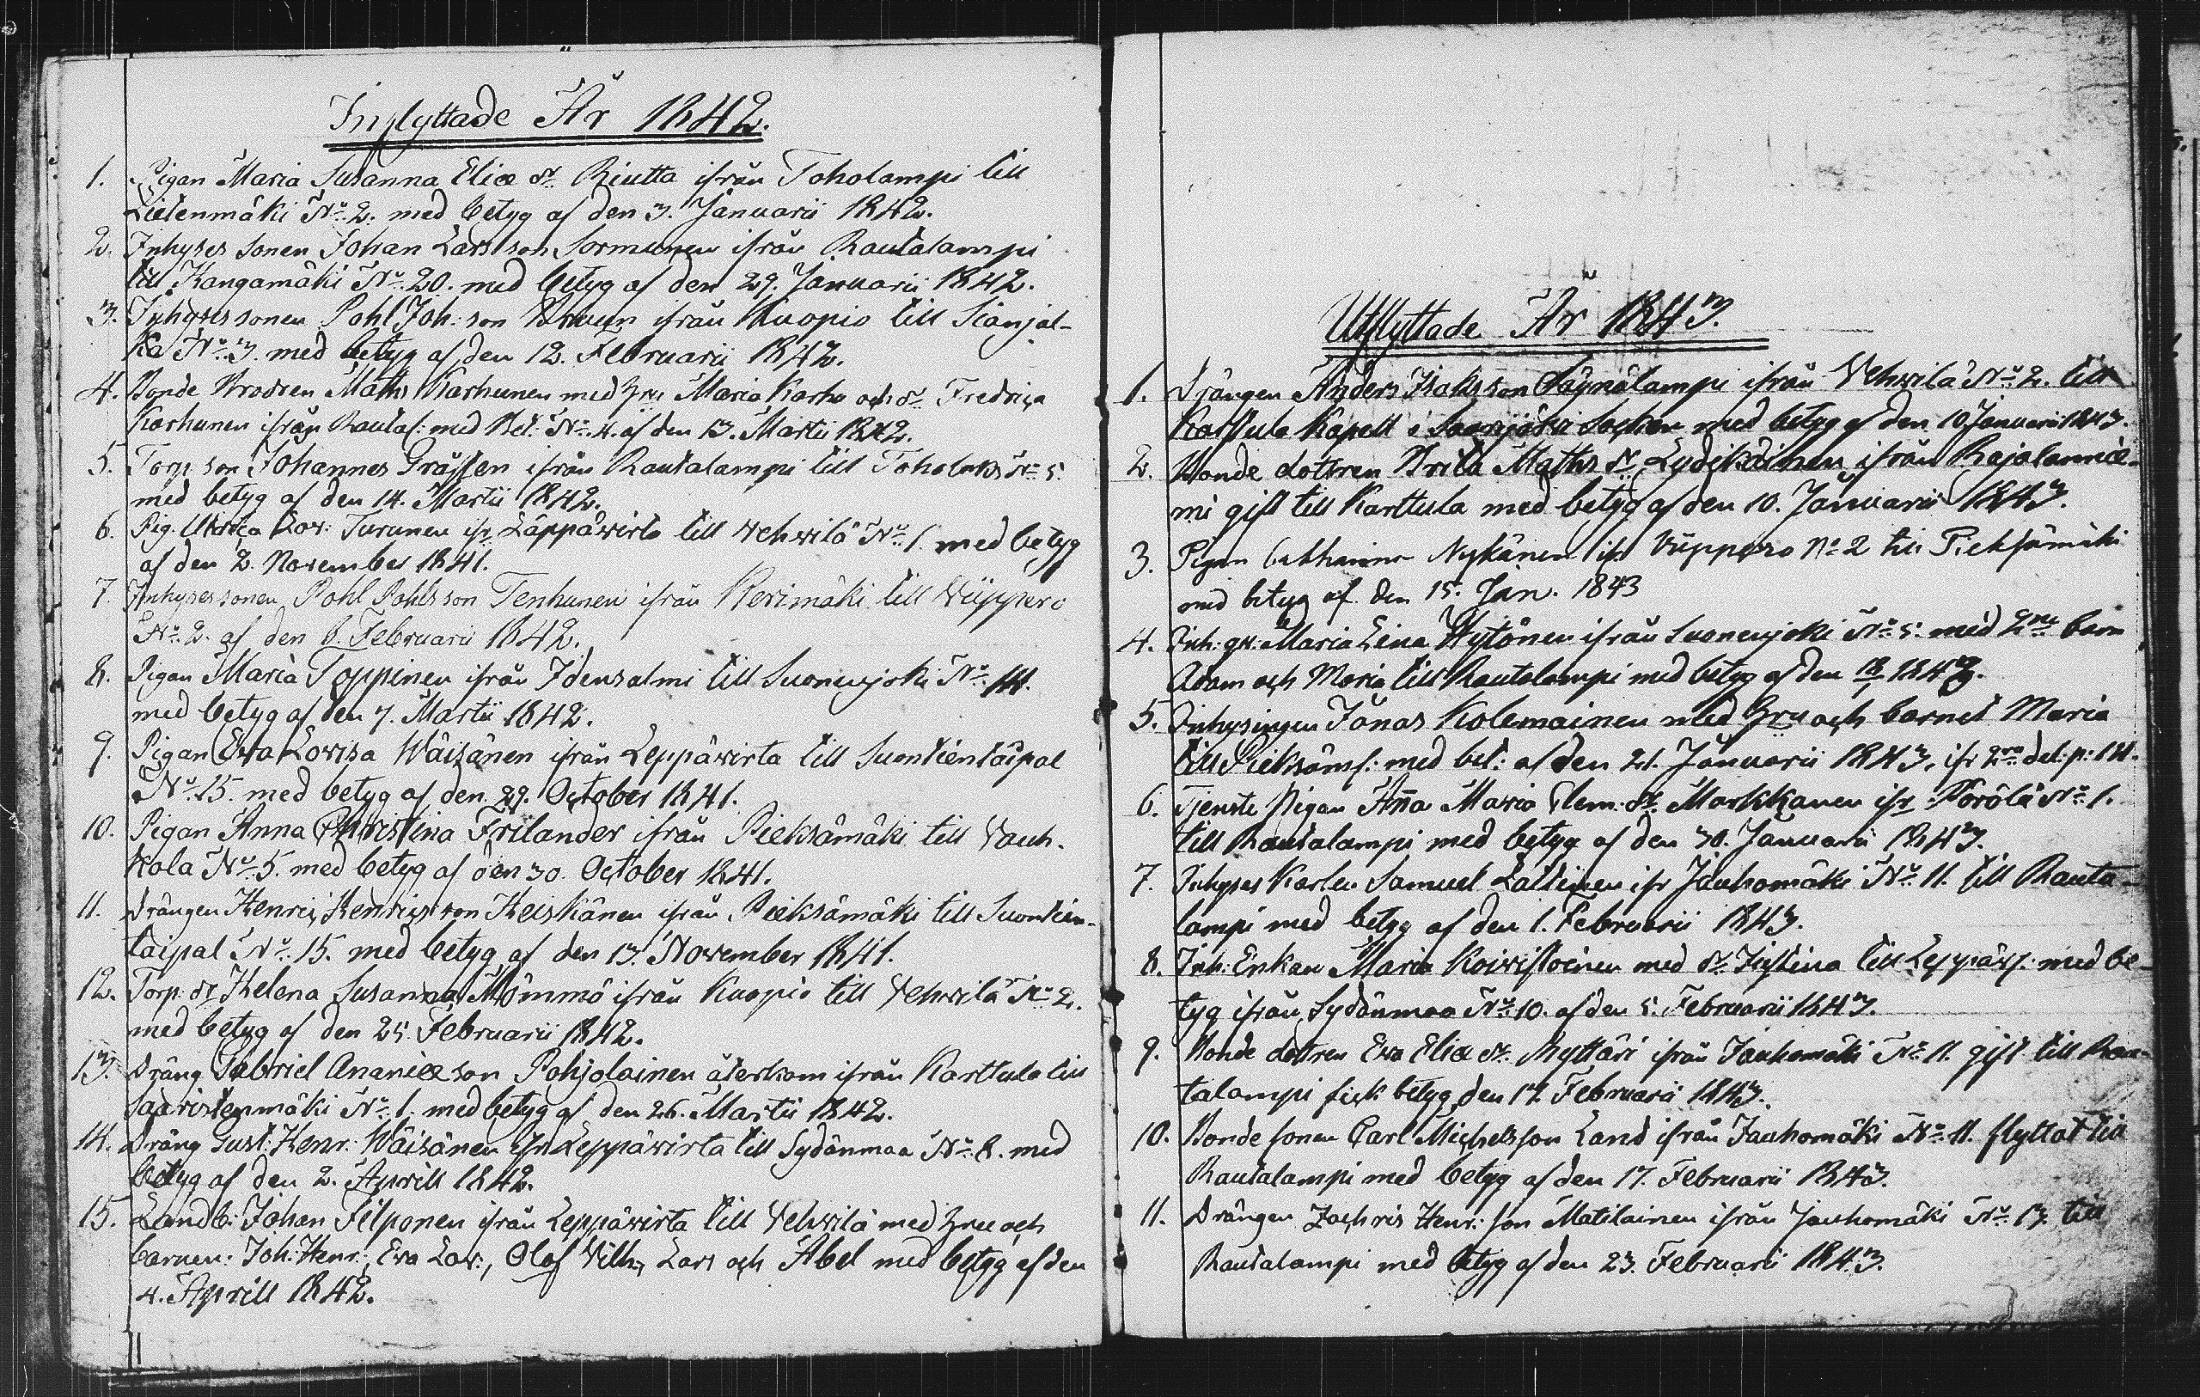 Inflyttade År 1842.
1. Pigan Maria Susanna Eliæ dr. Riutta ifrån Toholampi till
Lietenmäki No. 2. med betyg af den 3. Januarii 1842.
2. Inhyses sonen Johan Lars son Sormunen ifrån Rautalampi
till Kangamäki No. 20. med betyg af den 29. Januarii 1842.
3. Inhyses sonen Pohl Joh: son ifrån Kuopio till Sianjal-
ka No. 3. med betyg af den 12. Februarii 1842.
4. Bonde Brodren Maths Karhunen med hru Maria Karho och dr. Fredrica
Karhunen ifrån Rautal: med Bet: No. 4. af den 13. Martii 1842.
5. Torp son Johannes Gråsten ifrån Rautalampi till No. 5
med betyg af den 14. Martii 1842.
6. Pig. Ulrica Lov: Turunen ifr Läppäwirta till Vehvilä No. 1. med betyg
af den 2. November 1841.
7. Inhyses sonen Pohl Pohls son Tenhunen ifrån Kerimäki till Viippero
No. 2. af den 6. Februarii 1842.
8. Pigan Maria Toppinen ifrån Idensalmi till Suonenjoki No. 14.
med betyg af den 7. Martii 1842.
9. Pigan Eva Lovisa Wäisänen ifrån Leppäwirta till Suontientaipal
No. 15. med betyg af den 29. October 1841.
10. Pigan Anna Christina Frilander ifrån Pieksämäki till Vauh-
kola No. 5. med betyg af den 30. October 1841.
11. Drängen Henric Henrics son Heiskanen ifrån Pieksämäki till Suontien-
taipal No. 15. med betyg af den 13. November 1841.
12. Torp: dr Helena Susanna Mömmö ifrån Kuopio till Vehvilä No. 2.
med betyg af den 25. Februarii 1842.
13. Dräng Gabriel Ananiæ son Pohjolainen återkom ifrån Karttula till
Saaristenmäki No. 1. med betyg af den 26. Martii 1842.
14. Dräng Gust: Henr: Wäisänen ifr Leppäwirta till Sydänmaa No. 8. med
betyg af den 2. Aprill 1842.
15. Landb: Johan Filponen ifrån Leppäwirta till Vehvilä med hru och
barnen: Joh: Henr:, Eva Lov:, Olof Vilh:, Lars och Abel med betyg af den
4. Aprill 1842.
Utflyttade År 1843.
1. Drängen Anders Isaks son Säynälampi ifrån Vehvilä No. 2. till
Karstula Kapell i Saarijärvi Sochen med betyg af den 10 Januarii 1843.
2. Bonde dottren Brita Maths dr. Lydikäinen ifrån Rajalannie-
mi gift till Karttula med betyg af den 10. Januarii 1843.
3. Pigan Catharina Nykänen ifr Viippero No 2 till Pieksämäki
med betyg af den 15. Jan. 1843
4. Inh: gu: Maria Lena Hytönen ifrån Suonenjoki No. 5. med 2ne barn
Adam och Maria till Rautalampi med betyg af den 18/1 1843.
5. Inhysingen Jonas Kolemainen med hru och barnet Maria
till Pieksäms: med bet: af den 21. Januarii 1843, ifr 2dra del: p: 14.
6. Tjenste Pigan Anna Maria Clem: dr. Markkanen ifr Pörölä No. 1.
till Rautalampi med betyg af den 30. Januarii 1843.
7. Inhyses Karlen Samuel Laitinen ifr Jauhomäki No. 11. till Rauta-
lampi med betyg af den 1. Februarii 1843.
8. Inh: Enkan Maria Koivistoinen med dr. Justina till Leppäv: med be-
tyg ifrån Sydänmaa No. 10. af den 5. Februarii 1843.
9. Bonde dottren Eva Eliæ dr. Ryttäri ifrån Jauhomäki No. 11. gift till Rau-
talampi fick betyg den 17 Februarii 1843.
10. Bonde sonen Carl Michels son Land ifrån Jauhomäki No. 11. flyttat till
Rautalampi med betyg af den 17. Februarii 1843.
11. Drängen Zachris Henr: son Matilainen ifrån Jauhomäki No. 13. till
Rautalampi med betyg af den 23. Februarii 1843.